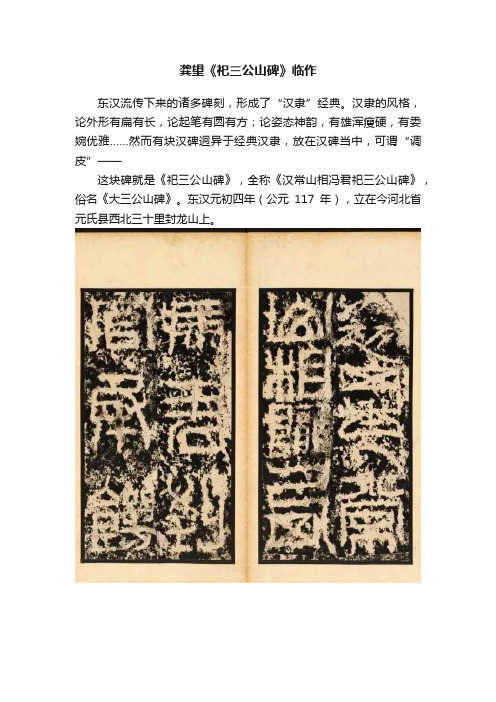 龚望《祀三公山碑》临作
东汉流传下来的诸多碑刻，形成了“汉隶”经典。汉隶的风格，
论外形有扁有长，论起笔有圆有方；论姿态神韵，有雄浑瘦硬，有委
婉优雅……然而有块汉碑迥异于经典汉隶，放在汉碑当中，可谓“调
皮”——
这块碑就是《祀三公山碑》，全称《汉常山相冯君祀三公山碑》，
俗名《大三公山碑》。东汉元初四年（公元 117 年），立在今河北省
元氏县西北三十里封龙山上。
初四年常
山相隴西
馮君到
官承饑